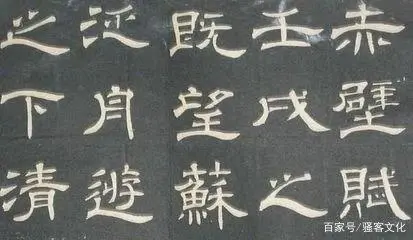 赤壁賦
壬戌之
既望蘇
泛舟遊
之下清
百家号/骚客文化